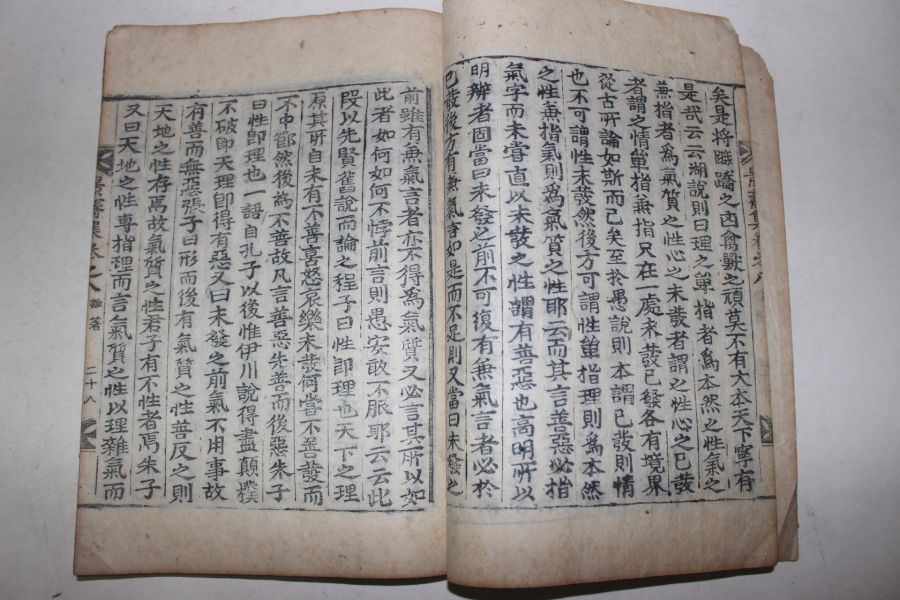 矣是將蹠蹻之凶禽獸之頑莫不有大本天下寧有
是哉云云湖說則曰理之單指者爲本然之性氣之
兼指者爲氣質之性心之未發者謂之性心之已發
者謂之情單指兼指只在一處未發已發各有境界
從古所論如斯而已矣至於愚說則本謂已發則情
也不可謂性未發然後方可謂性單指理則爲本然
之性兼指氣則爲氣質之性耶云而其言善惡必指
氣字而未嘗直以未發之性謂有善惡也高明所以
明辨者固當曰未發之前不可復有兼氣言者必於
已發後方有兼氣言如是而不足則又當曰未發之
前雖有兼氣言者亦不得爲氣質又必言其所以如
此者如何如何不悖前言則愚安敢不服耶云云此
段以先賢舊說而論之程子曰性卽理也天下之理
原其所自未有不善喜怒哀樂未發何嘗不善發而
不中節然後爲不善故凡言善惡先善而後惡朱子
曰性卽理也一語自孔子以後惟伊川說得盡顚撲
不破卽天理卽得有惡又曰未發之前氣不用事故
有善而無惡張子曰形而後有氣質之性善反之則
天地之性存焉故氣質之性君子有不性者焉朱子
又曰天地之性專指理而言氣質之性以理雜氣而
集卷之八 雜著 二十八